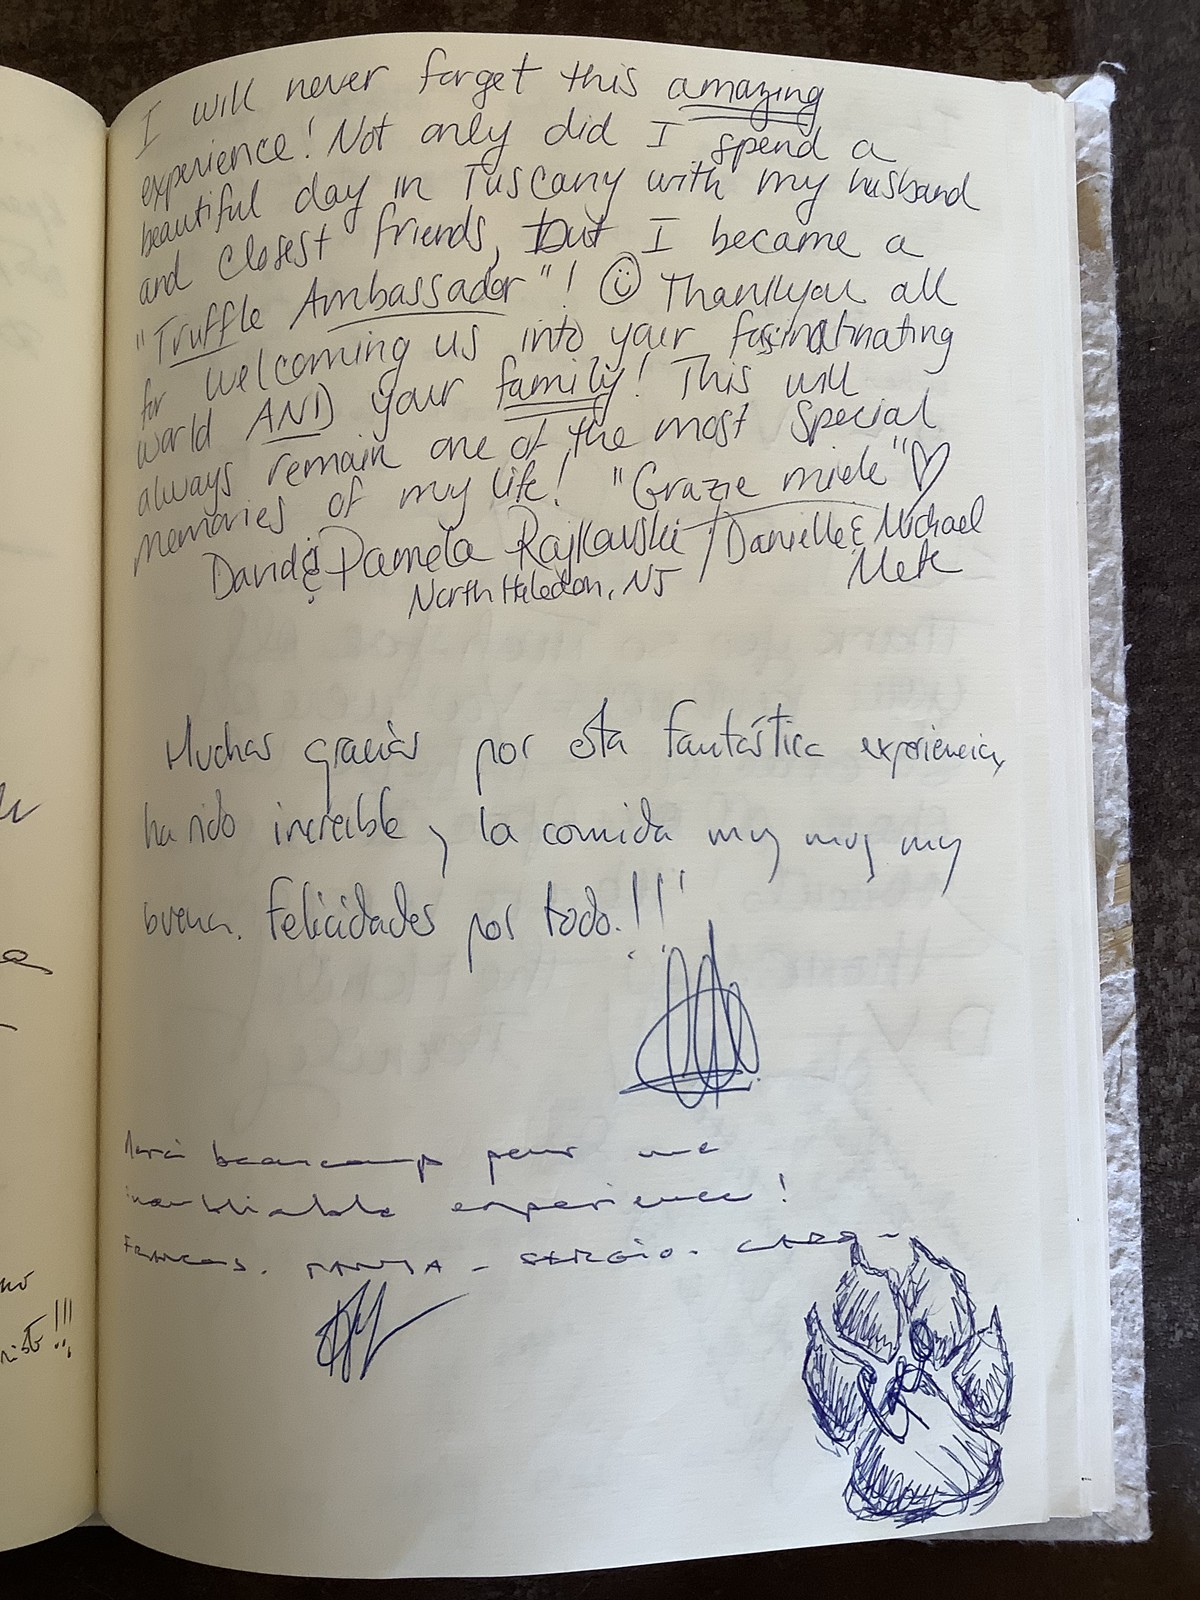 I will never forget this amazing
experience! Not only did I spend a
beautiful day in Tuscany with my husband
and closest friends, but I became a
"Truffle Ambassador"! ☺ Thankyou all
for welcoming us into your
world AND your family! This will
always remain one of the most special
memories of my life! "Grazie miele" ♡
David & Pamela Rajkowski / Danielle & Michael
North Haledon, NJ
Muchas gracias por esta fantástica experiencia,
ha sido increíble y la comida muy muy muy
buena. Felicidades por todo!!!
Merci beaucoup pour une
inoubliable experience!
SERGIO.